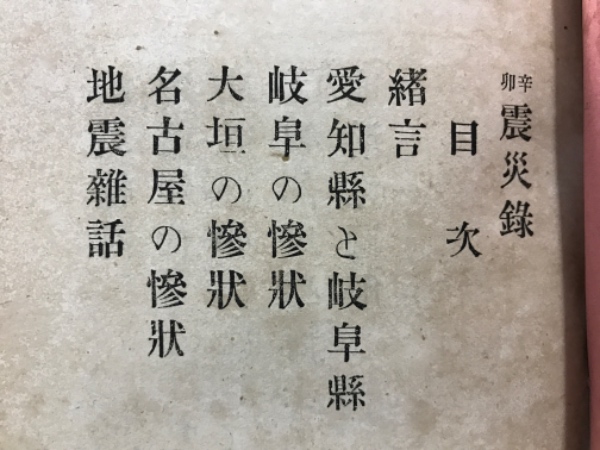 辛卯震災錄
目次
緒言
愛知縣と岐阜縣
岐阜の慘狀
大垣の慘狀
名古屋の慘狀
地震雜話